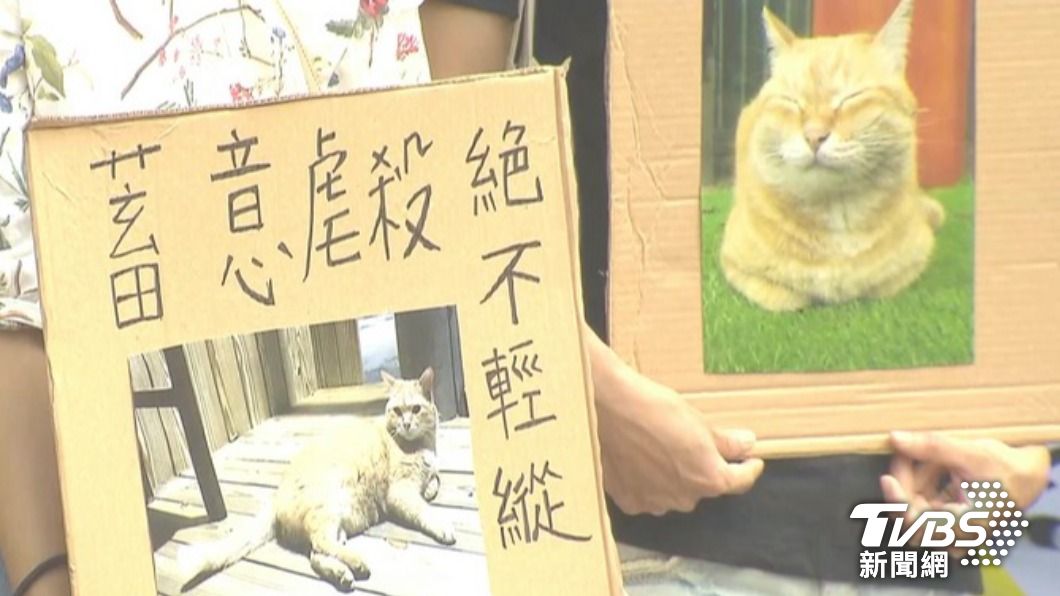 蓄意虐殺
絕不輕縱
TVBS
新聞網